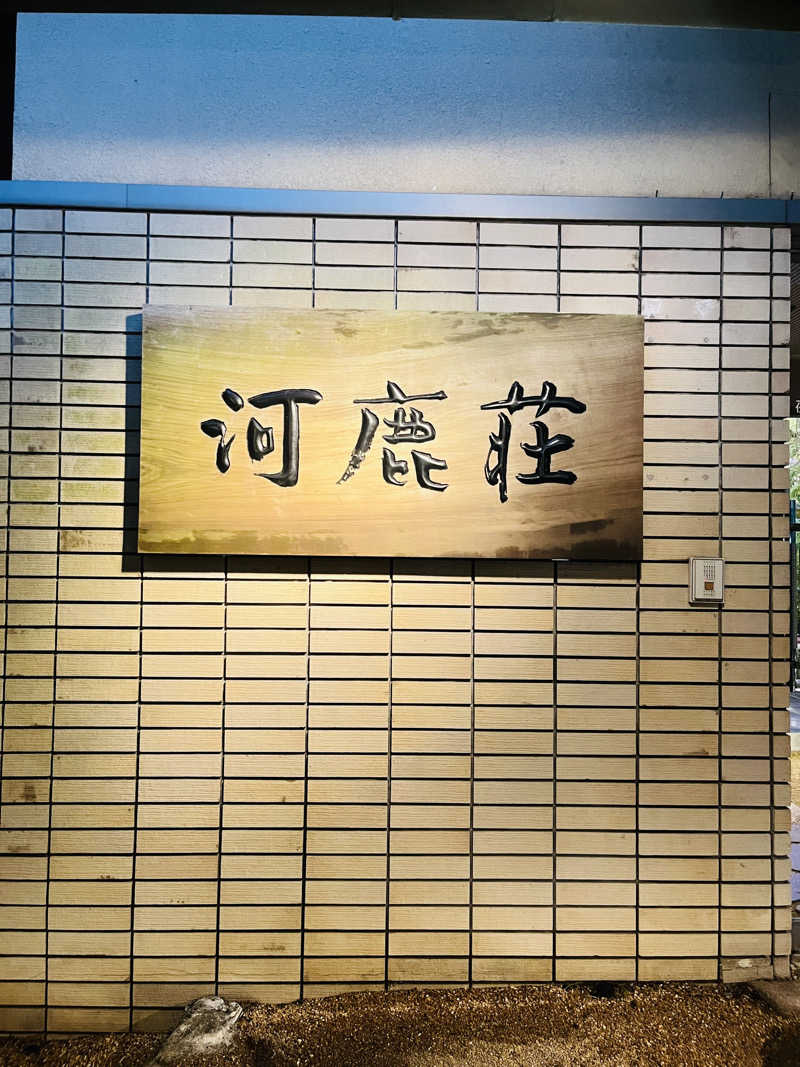 河鹿荘